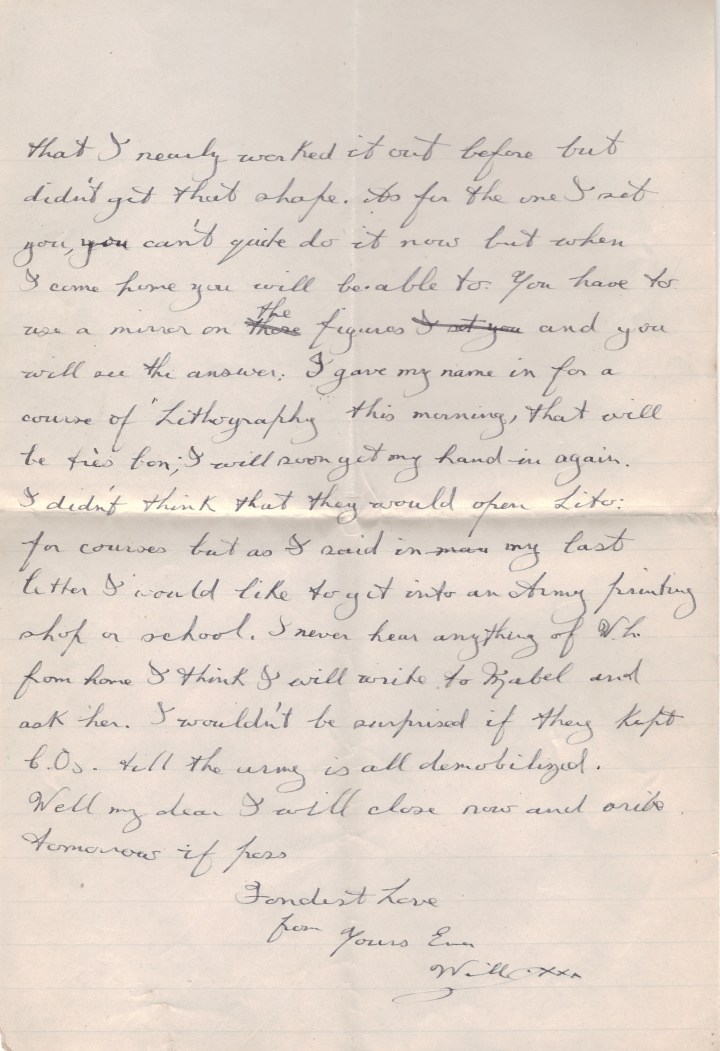 that I nearly worked it out before but
didn't get that shape. As for the one I set
you, you can't quite do it now but when
I come home you will be able to. You have to
use a mirror on these the figures I set you and you
will see the answer. I gave my name in for a
course of "Lithography this morning, that will
be très bon; I will soon get my hand in again.
I didn't think that they would open Lito:
for courses but as I said in man my last
letter I would like to get into an Army printing
shop or school. I never hear anything of
from home I think I will write to Mabel and
ask her. I wouldn't be surprised if they kept
C.Os. till the army is all demobilized.
Well my dear I will close now and write
tomorrow if poss
Fondest Love
from Yours Ever
Will xxx